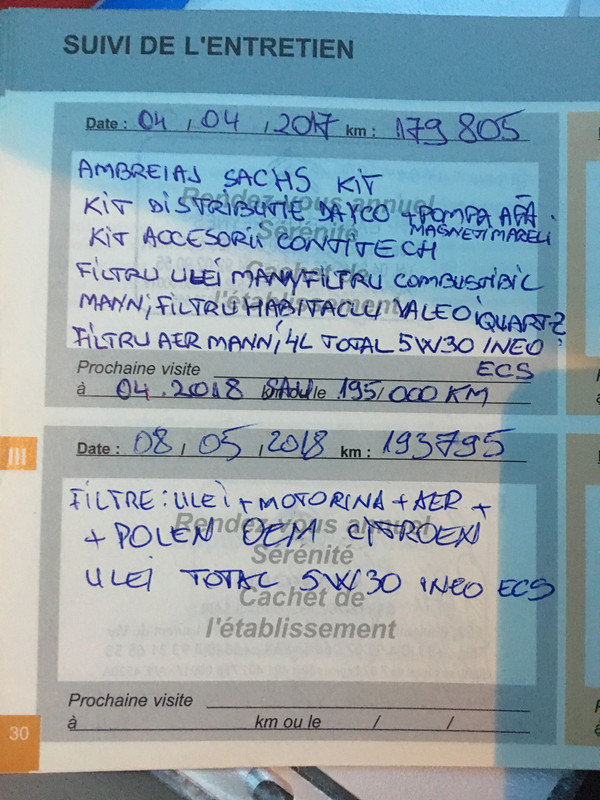 SUIVI DE L'ENTRETIEN
Date : 04 , 04 , 2017 km : 179 805
AMBREIAJ SACHS KIT
KIT DISTRIBUTIE DAYCO +POMPA APĂ
MAGNETI MARELI
KIT ACCESORII CONTITECH
FILTRU ULEI MANN/FILTRU COMBUSTIBIL
MANN; FILTRU HABITACLU VALEO
FILTRU AER MANN; 4L TOTAL QUARTZ 5W30 INEO
ECS
Rendez-vous annuel
Sérénité
Cachet de
l'établissement
Prochaine visite
à 04.2018 SAU 195,000 KM
Date : 08 , 05 , 2018 km : 193795
FILTRE: ULEI + MOTORINA + AER +
+ POLEN OEM CITROEN
ULEI TOTAL 5W30 INEO ECS
Rendez-vous annuel
Sérénité
Cachet de
l'établissement
Prochaine visite
à km ou le / /
III
30